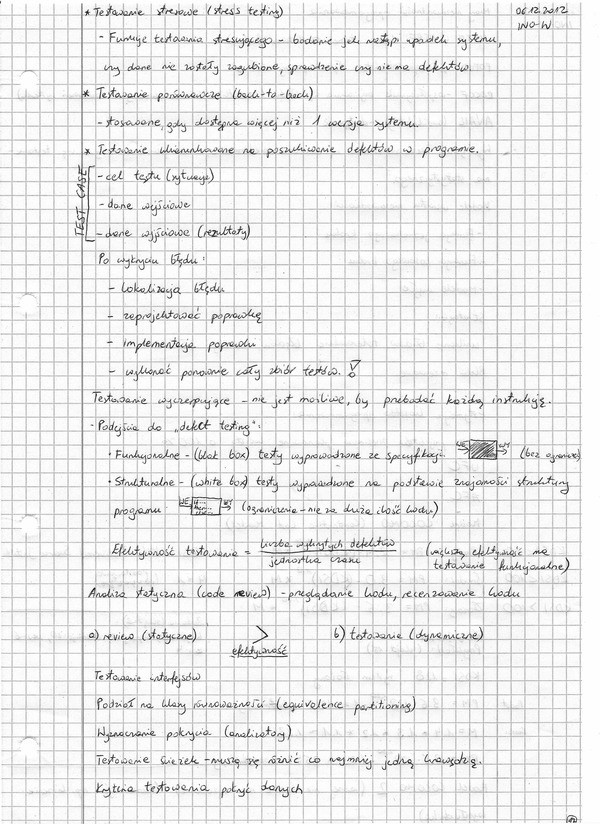 * Testowanie stresowe (stress testing) 06.12.2012
INO-W
- Funkcje testowania stresującego - badanie jak nastąpi upadek systemu,
czy dane nie zostały zagubione, sprawdzenie czy nie ma defektów.
* Testowanie porównawcze (back-to-back)
- stosowane, gdy dostępna więcej niż 1 wersja systemu
* Testowanie ukierunkowane na poszukiwanie defektów w programie.
TEST CASE
- cel testu (sytuacja)
- dane wejściowe
- dane wyjściowe (rezultaty)
Po wykryciu błędu:
- lokalizacja błędu
- zaprojektować poprawkę
- implementacja poprawki
- wykonać ponownie cały zbiór testów. !
Testowanie wyczerpujące - nie jest możliwe, by przebadać każdą instrukcję.
- Podejścia do "defect testing":
• Funkcjonalne - (blak box) testy wyprowadzone ze specyfikacji. WE WY (bez ograniczeń)
• Strukturalne - (white box) testy wyprowadzone na podstawie znajomości struktury
programu. WE WY (ograniczenie - nie za duża ilość kodu)
Efektywność testowania = liczba wykrytych defektów / jednostka czasu (większą efektywność ma
testowanie funkcjonalne)
Analiza statyczna (code review) - przeglądanie kodu, recenzowanie kodu
a) review (statyczne) > b) testowanie (dynamiczne)
efektywność
Testowanie interfejsów
Podział na klasy równoważności (equivalence partitioning)
Wyznaczanie pokrycia (analizatory)
Testowanie ścieżek - muszą się różnić co najmniej jedną krawędzią.
Kryteria testowania pokryć danych